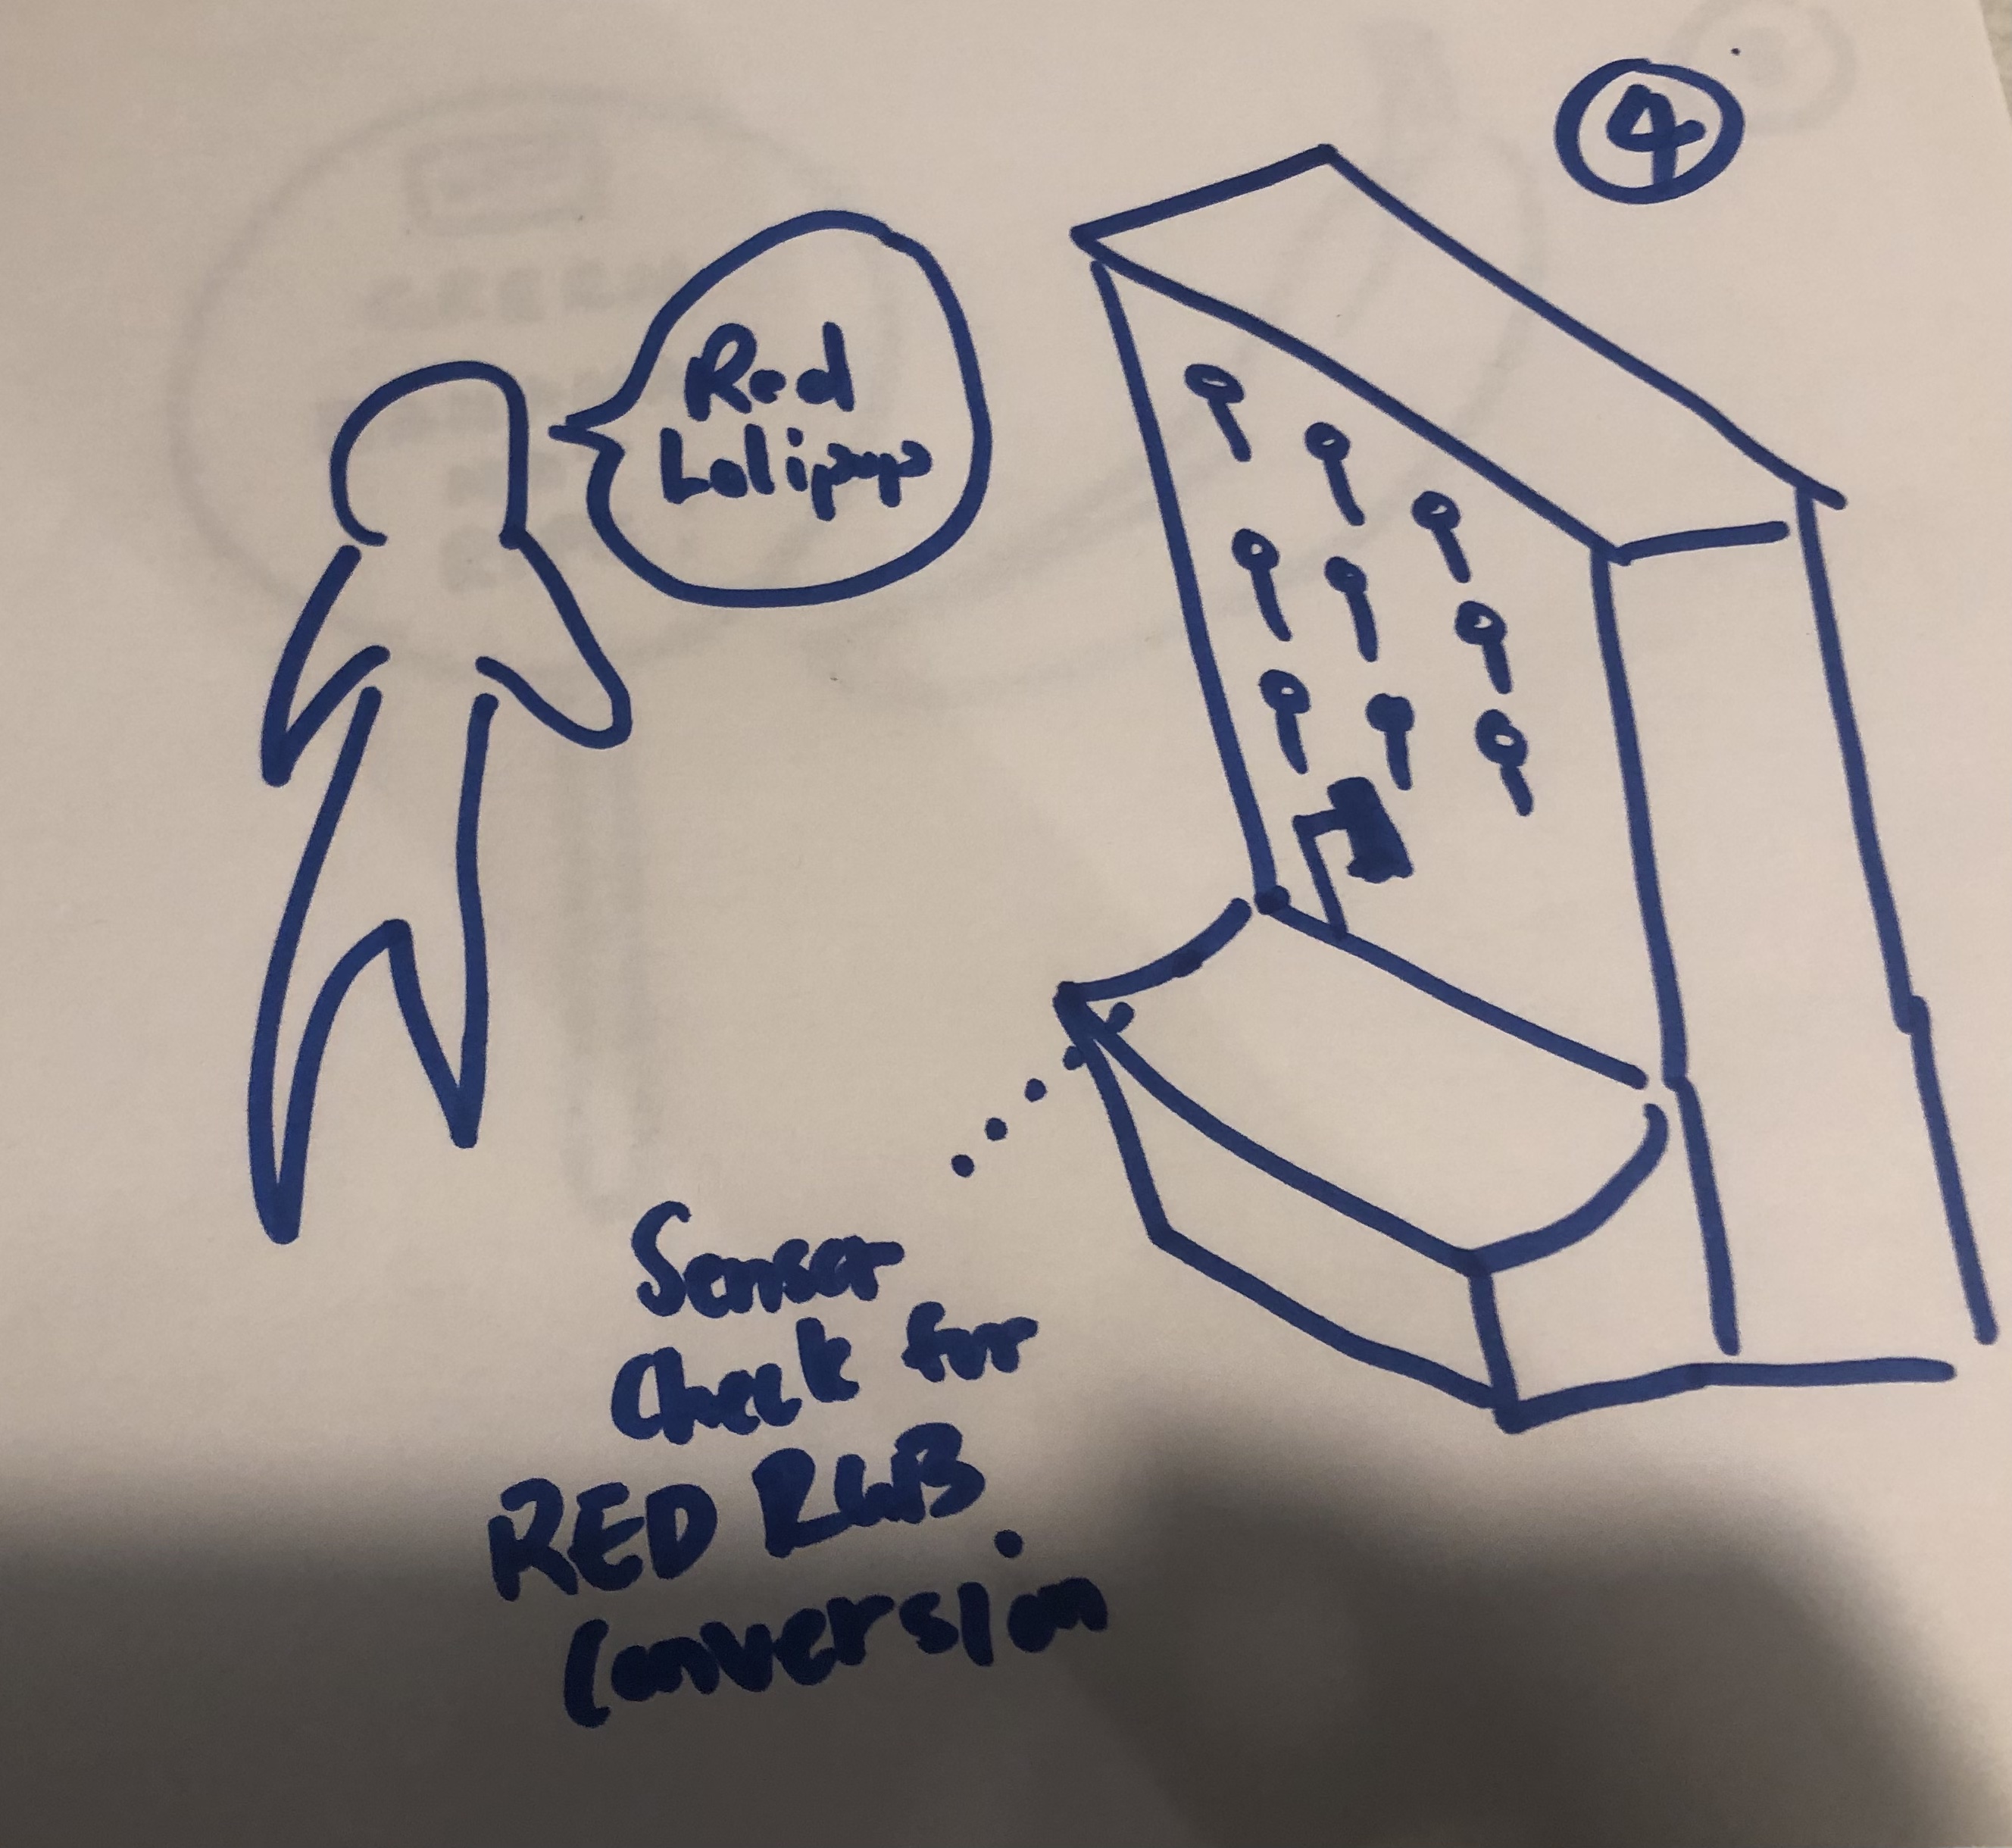 4
Red
Lolipop
Sensor
Check for
RED RGB
Conversion